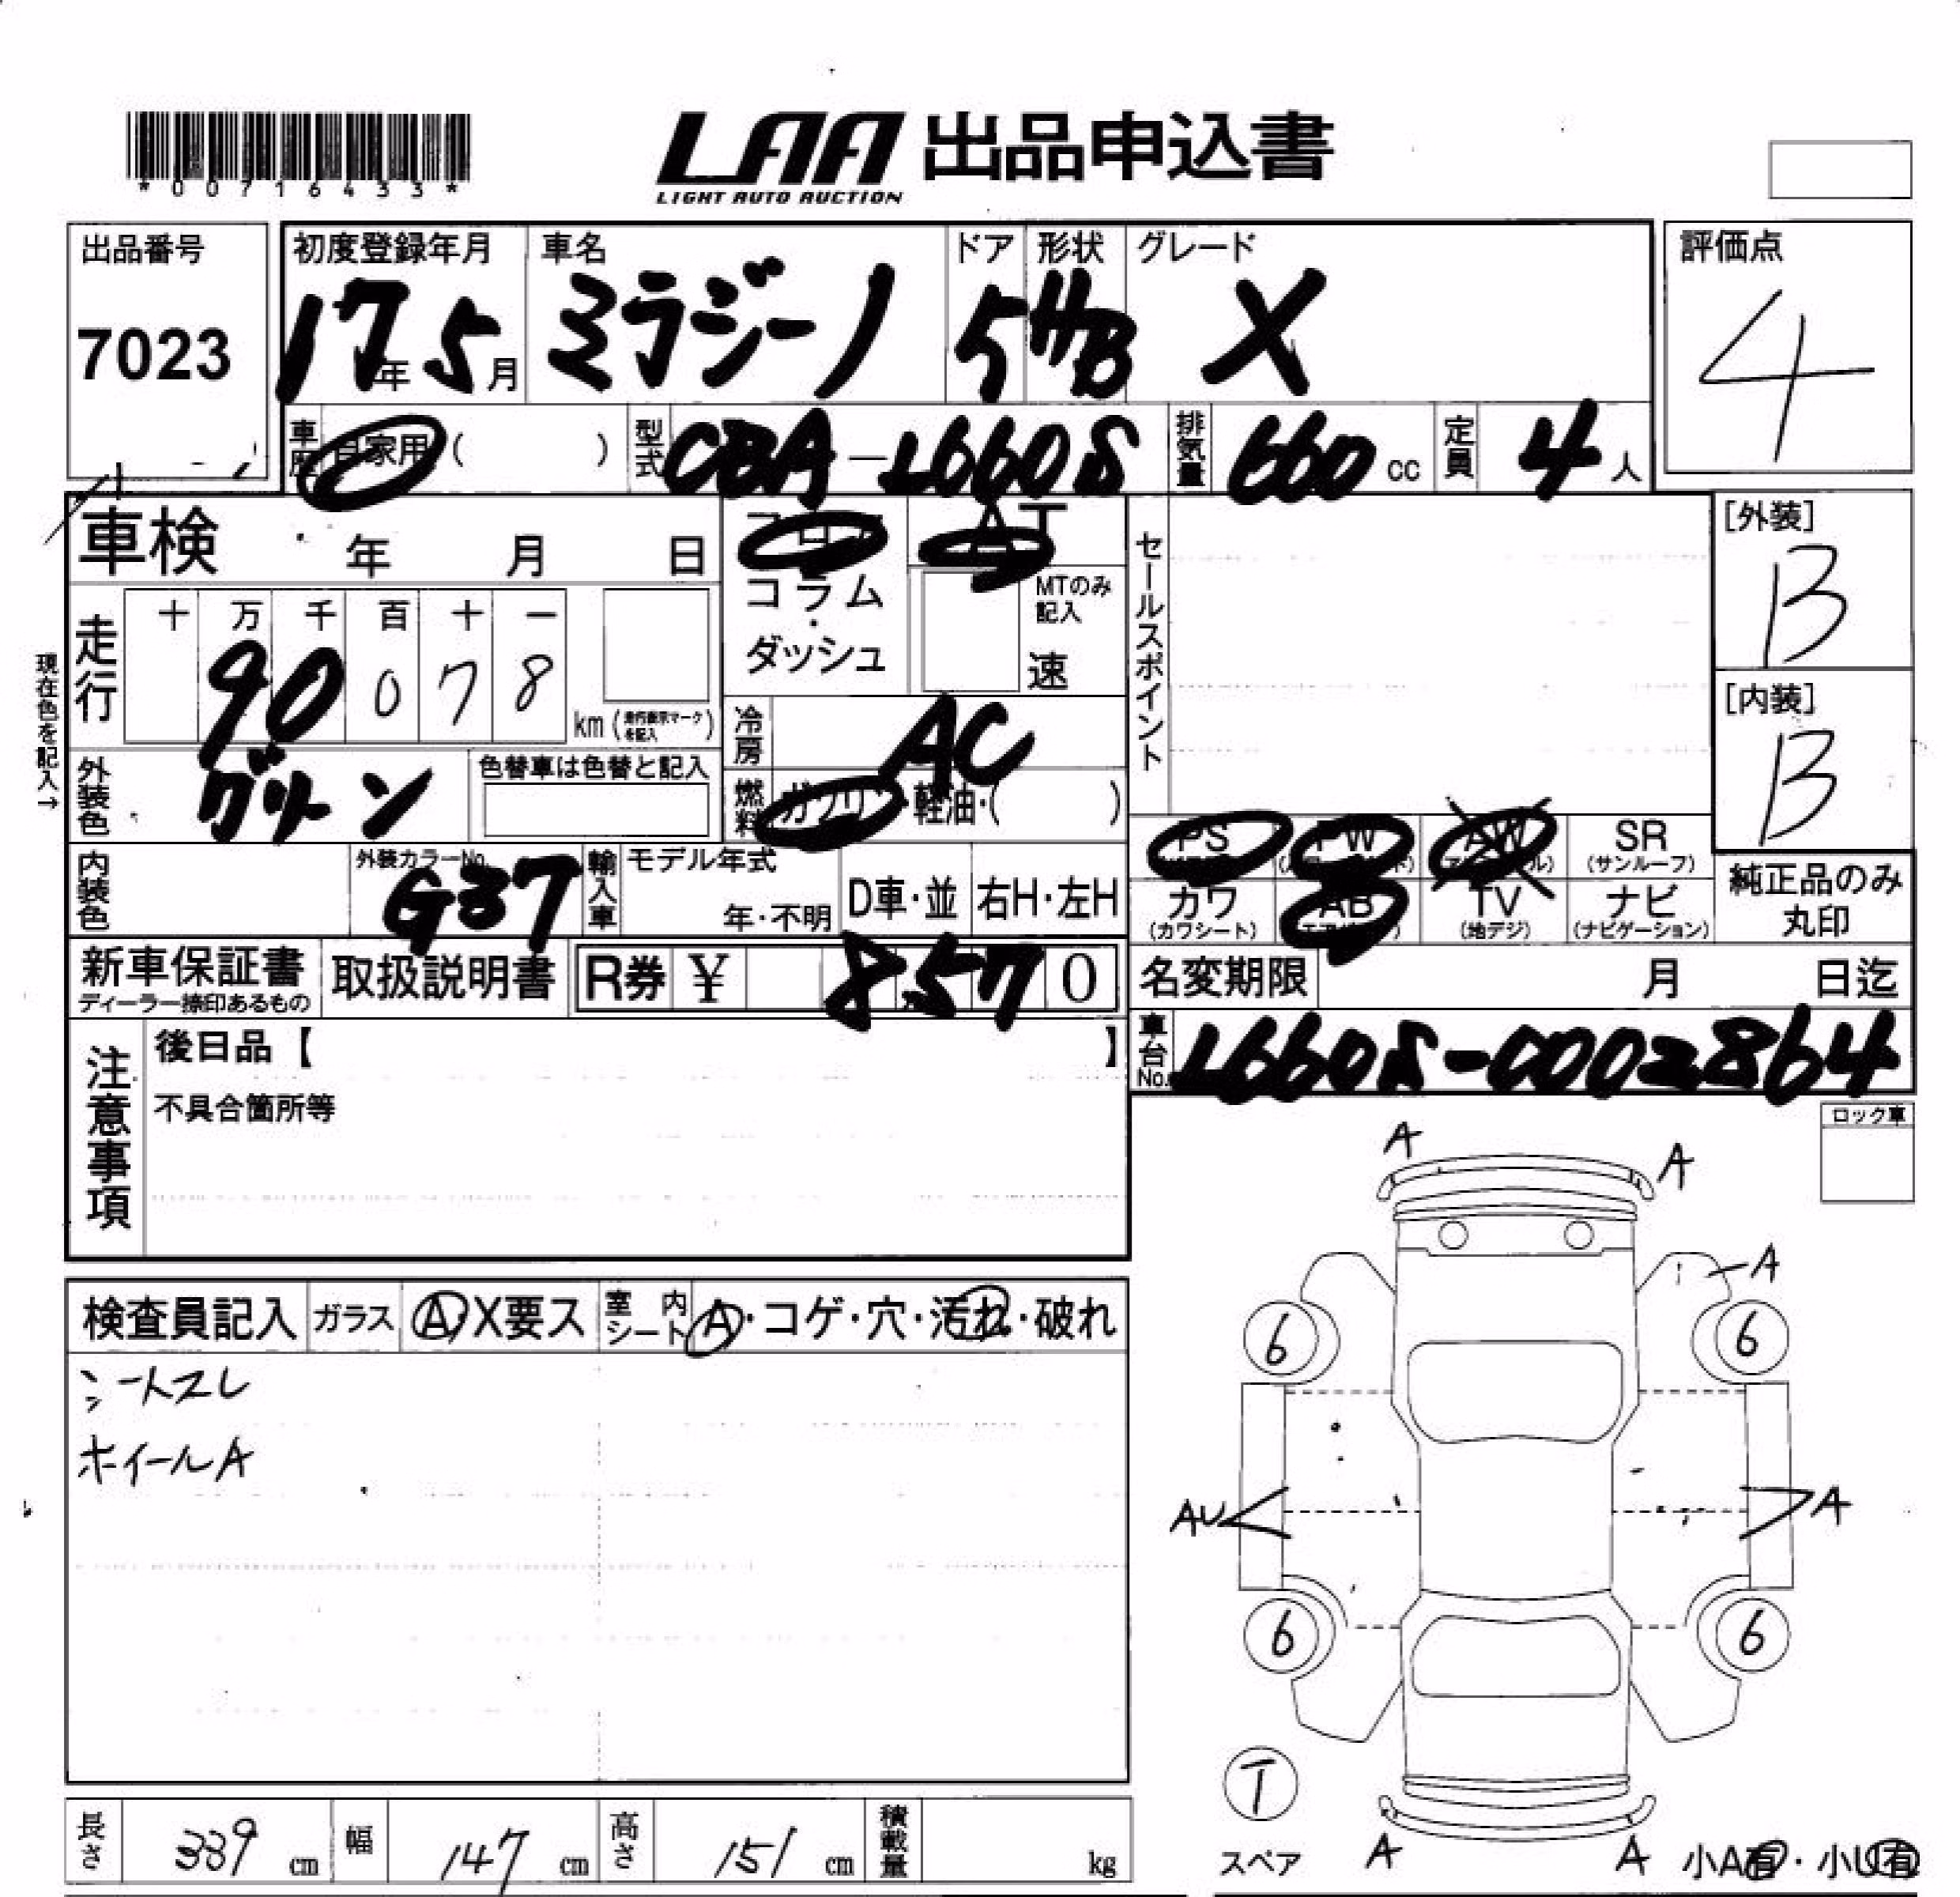 *00716433*
LAA 出品申込書
LIGHT AUTO AUCTION
出品番号 初度登録年月 車名 ドア 形状 グレード 評価点
7023 17年 5月 ミラジーノ 5 HB X 4
車歴 自家用 ( ) 型式 CBA-L660S 排気量 660 cc 定員 4 人
車検 年 月 日 フロア AT セールスポイント [外装]
B
コラム・ダッシュ MTのみ記入 速
現在色を記入→
走行 十 万 千 百 十 一
90078 km (走行表示マークを記入)
[内装]
B
冷房 AC
外装色 グリーン 色替車は色替と記入 燃料 ガソリン・軽油・( )
PS PW AW SR
(サンルーフ)
内装色 外装カラーNo. G37 輸入車 モデル年式 年・不明 D車・並 右H・左H
カワ AB TV ナビ
(カワシート) (地デジ) (ナビゲーション)
純正品のみ
丸印
新車保証書 取扱説明書 R券 ¥ 8,570 名変期限 月 日迄
ディーラー捺印あるもの
車台No. L660S-0002864
注意事項 後日品【 】
不具合箇所等
ロック車
A A
A
検査員記入 ガラス A X要ス 室内シート A・コゲ・穴・汚れ・破れ
6 6
シートスレ
ホイールA
AU A
6 6
T
スペア A A 小A有・小U有
長さ 339 cm 幅 147 cm 高さ 151 cm 積載量 kg